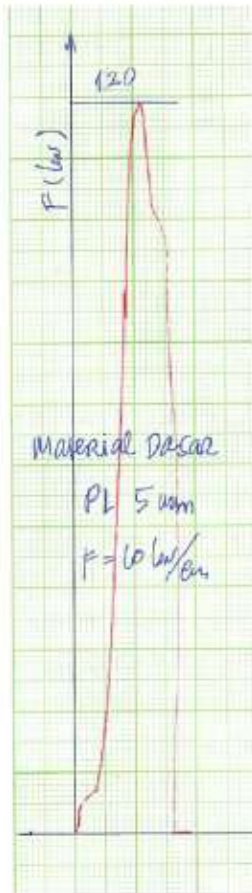 120
F (kN)
Material Dasar
PL 5 mm
F = 10 kN/cm